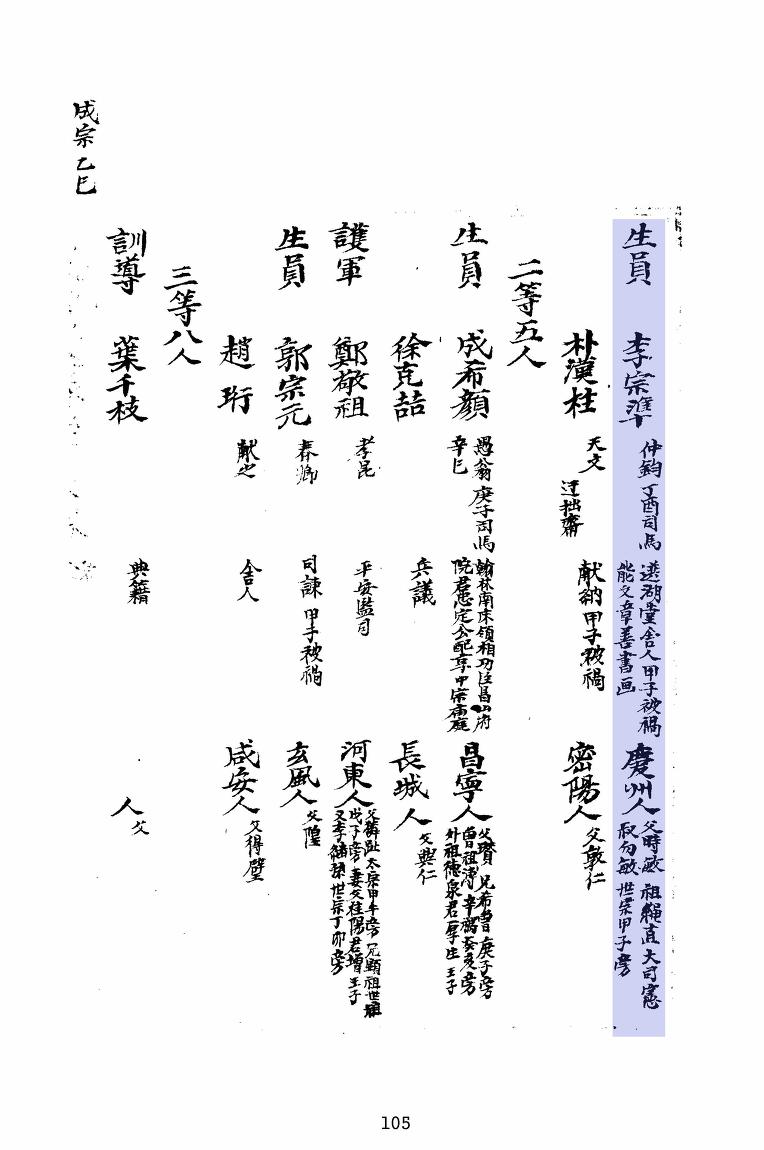 生員 李宗準 仲鈞 丁酉司馬 選湖堂舍人甲子被禍 能文章善書画 慶州人 父時敏 祖繩直大司憲 叔句敏 世宗甲子旁
朴漢柱 天文 迂拙齋 献納甲子被禍 密陽人 父敦仁
二等五人
生員 成希顔 愚翁 庚子司馬 辛巳 翰林南床領相功臣昌山府 院君忠定公配享中宗廟庭 昌寧人 父瓚 兄希曾 庚子旁 曾祖溥 辛禑癸亥旁 外祖德泉君厚生 王子
徐克喆 兵議 長城人 父興仁
護軍 鄭敬祖 孝昆 平安監司 河東人 父麟趾 太宗甲午旁 兄顯祖世祖 戊子旁 妻父桂陽君增 王子
生員 郭宗元 春卿 司諫 甲子被禍 玄風人 父隍
趙珩 献之 舍人 咸安人 父得璧
三等八人
訓導 葉千枝 典籍 人 父
成宗乙巳
105